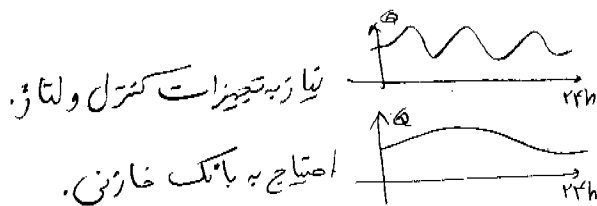 Q
نیاز به تجهیزات کنترل ولتاژ.
۲۴h
Q
احتیاج به بانک خازنی.
۲۴h